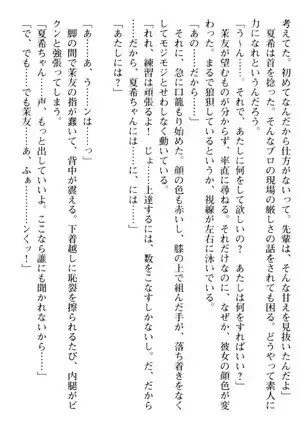 考えてた。初めてなんだから仕方がないって。先輩は、そんな甘えを見抜いたんだよ」
　夏希は首を捻った。そんなプロの現場の厳しさの話をされても困る。どうやって素人に
力になれというんだろう。
「う〜ん……。それで、あたしに何をして欲しいの？　あたしは何をすればいい？」
　茉友が望むものが分からず、率直に尋ねる。それだけなのに、なぜか、彼女の顔色が変
わった。まるで狼狽しているというか、視線が左右に泳いでいる。
　それに、急に口籠もり始めた。顔の色も赤いし、膝の上で組んだ手が、落ち着きをなく
してモジモジとせわしなく動いている。
「れ、練習は頑張るよ！　じょ……上達するには、数をこなすしかないし。だ、だから
……だから、夏希ちゃんには……に、には……」
「あたしには？」

「あ……あ、う……ンは　　……っ」
　脚の間で茉友の指が蠢いて、背中が震える。下着越しに恥裂を擦られるたび、内腿がビ
クンと強張ってしまう。
「夏希ちゃん……声、もっと出していいよ。ここなら誰にも聞かれないから……」
「で、でも……でも茉友、あ、ふぁ……………ンくっ！」